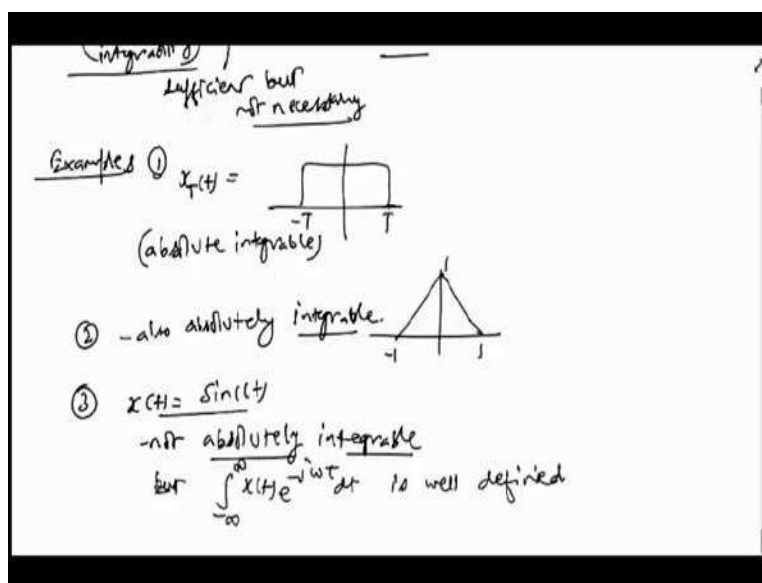 (integrability)
sufficient but
not necessary
Examples ① x_T(t) =
-T T
(absolute integrable)
1
② - also absolutely integrable.
-1 1
③ x(t) = sinc(t)
- not absolutely integrable
but ∫_{-∞}^{∞} x(t) e^{-jωt} dt is well defined